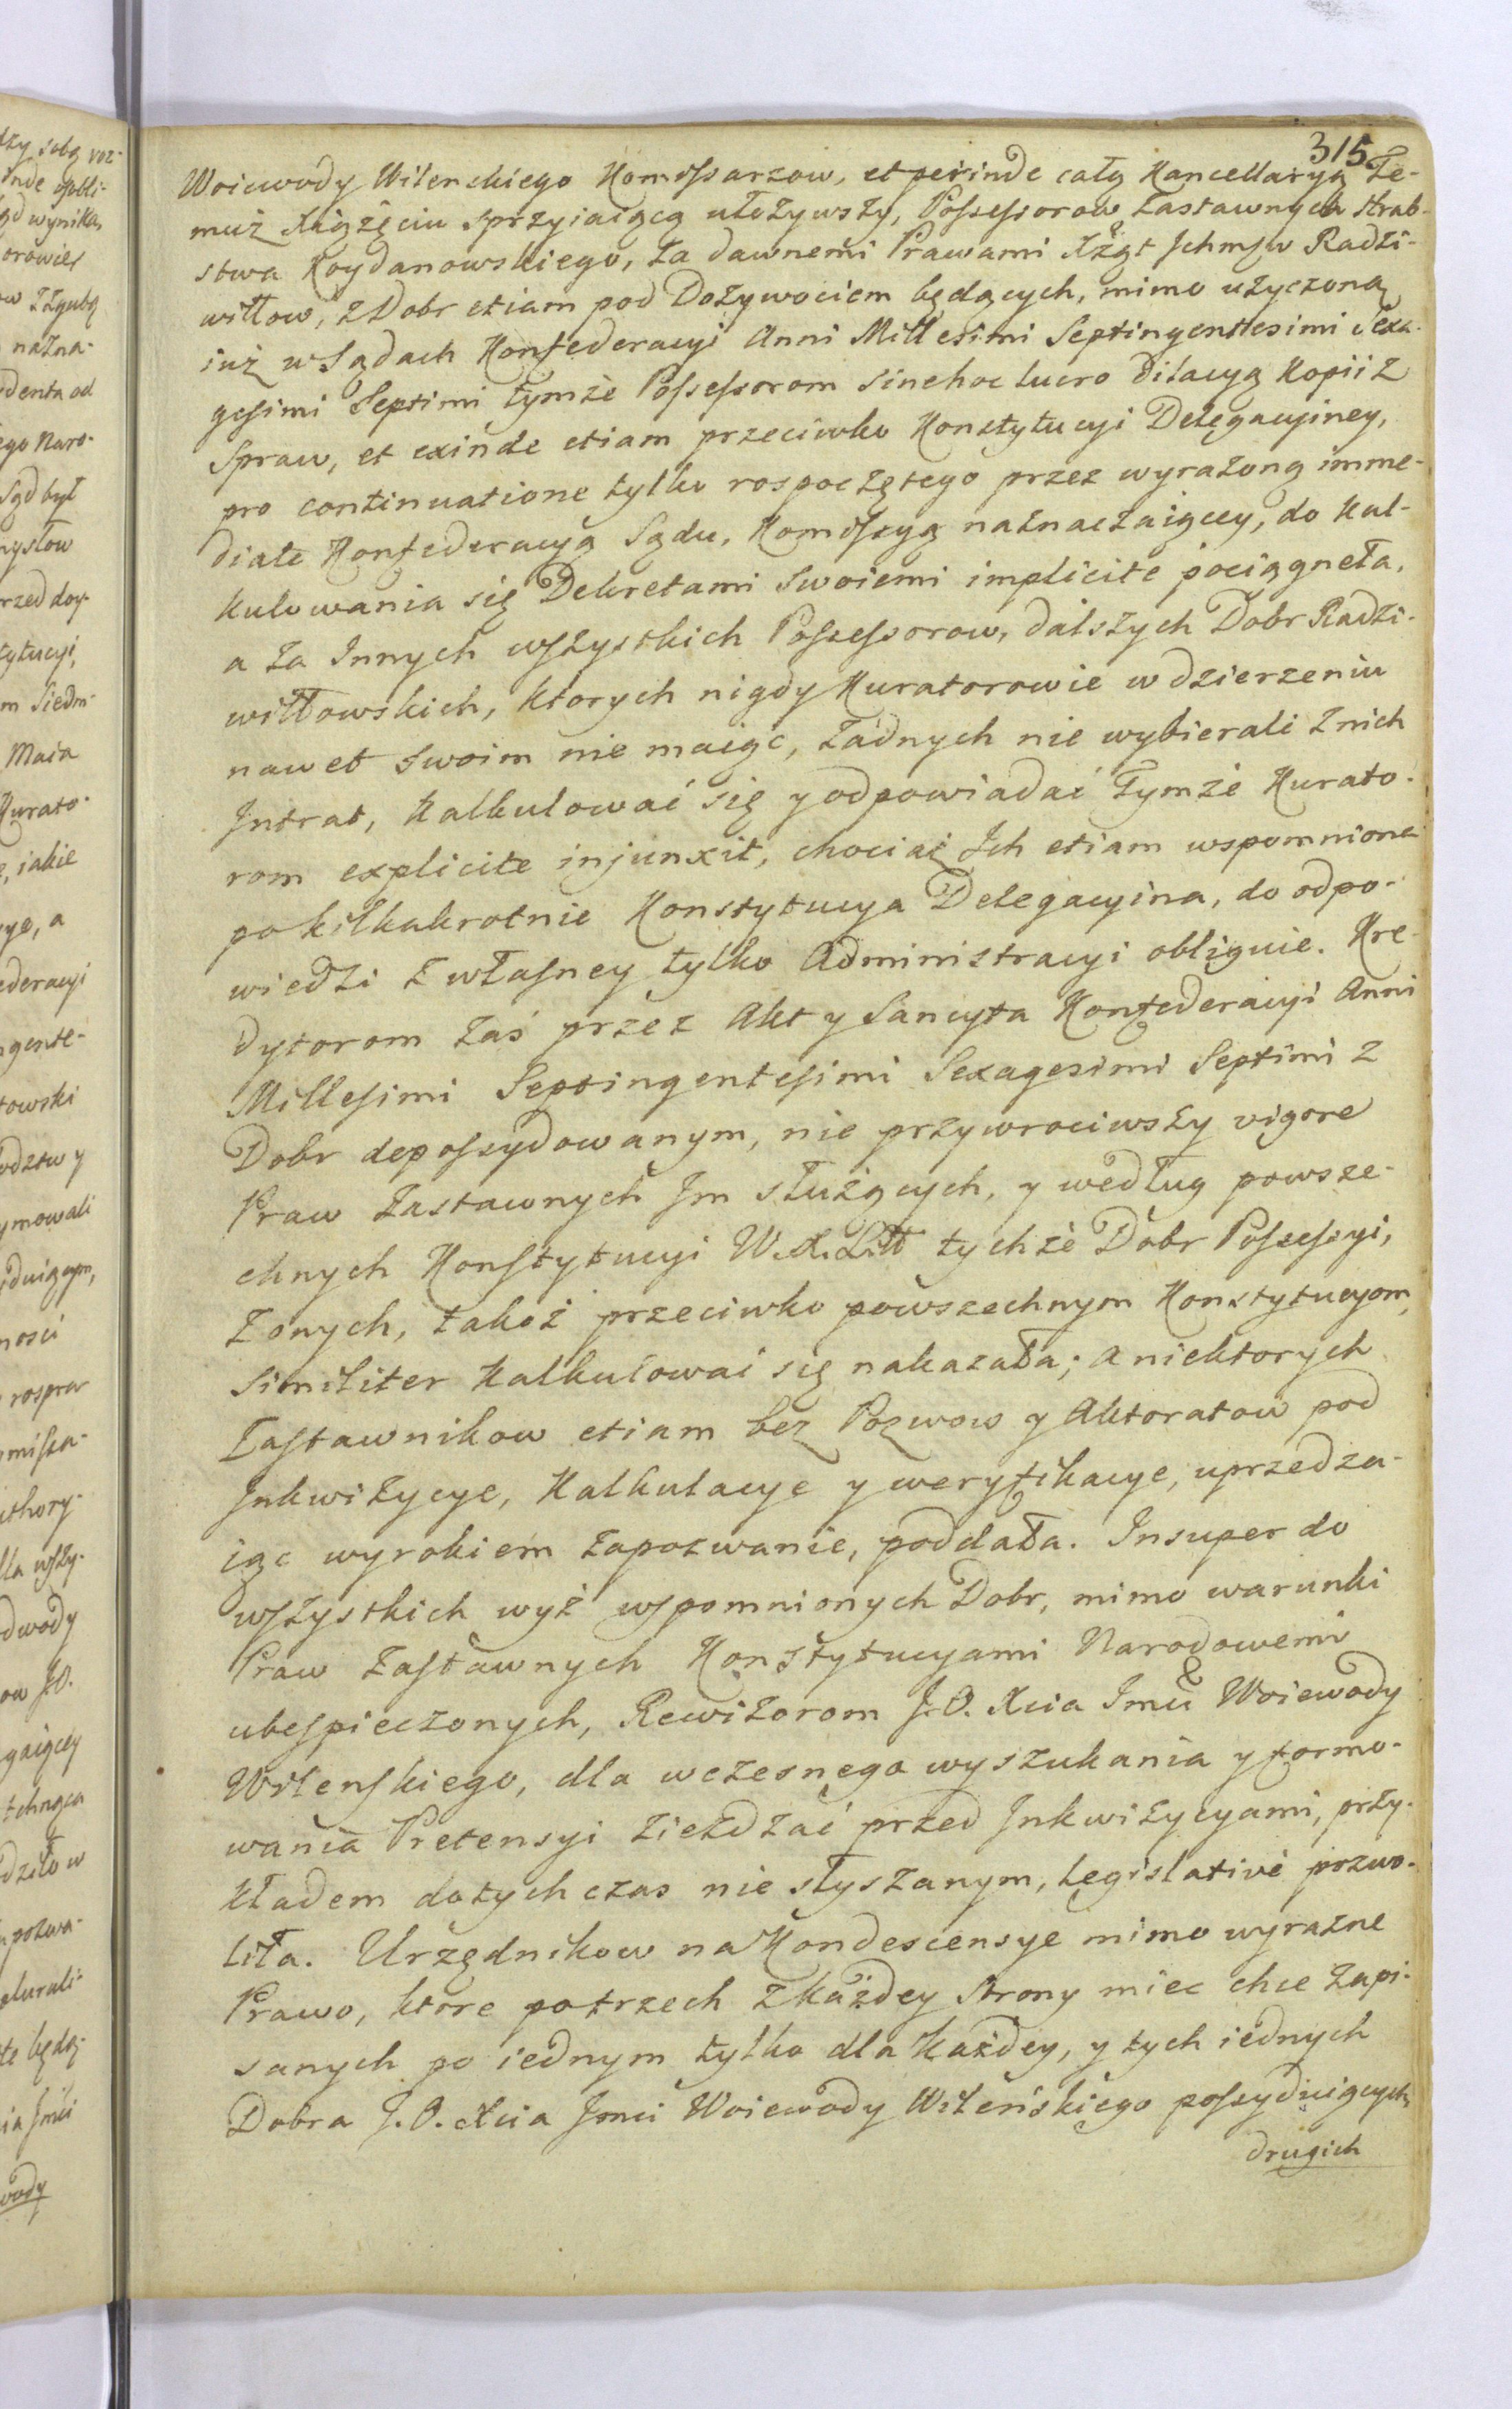 315.
Woiewody Wilenskiego Kommissarzow, et perinde całą Kancellaryą Te-
muż Xiążęciu sprzyiaiącą ułożywszy, Possessorow Zastawnych Hrab-
stwa Koydanowskiego, za dawnemi Prawami Xżąt Jchmsw Radzi-
wiłłow, z Dobr etiam pod Dożywociem będących, mimo użyczoną
iuż w Sądach Konfederacyi Anni Millesimi Septingenttesimi Sexa-
gesimi Septimi tymże Possessorom sine hoc lucro dilacyą Kopii z
Spraw, et exinde etiam przeciwko Konstytucyi Delegacyiney,
pro continuatione tylko rospoczętego przez wyrażoną imme-
diate Konfederacyą Sądu, Komissyą naznaczaiącey, do Kal-
kulowania się Dekretami swoiemi implicite pociągneła,
a za Innych wszystkich Possessorow, dalszych Dobr Radzi-
wiłłowskich, ktorych nigdy Kuratorowie w dzierzeniu
nawet swoim nie maiąc, żadnych nie wybierali z nich
Jntrat, Kalkulować się y odpowiadać Tymże Kurato-
rom explicite injunxit, chociaż Jch etiam wspomniona
po kilkakrotnie Konstytucya Delegacyina, do odpo-
wiedzi z własney tylko Administracyi obliguie. Kre-
dytorom zaś przez Akt y Sancyta Konfederacyi Anni
Millesimi Septingentesimi Sexagesimi Septimi z
Dobr depossydowanym, nie przywrociwszy vigore
Praw Zastawnych Jm służących, y według powsze-
chnych Konstytucyi W.X.Litt tychże Dobr Possessyi,
z onych, takoż przeciwko powszechnym Konstytucyom,
similiter Kalkulować się nakazała; a niektorych
Zastawnikow etiam bez Pozwow y Aktoratow pod
Jnkwizycye, Kalkulacye y weryfikacye, uprzedza-
iąc wyrokiem zapozwanie, poddała. Insuper do
wszystkich wyż wspomnionych Dobr, mimo warunki
Praw Zastawnych Konstytucyami Narodowemi
ubespieczonych, Rewizorom J.O. Xcia Jmci Woiewody
Wilenskiego, dla wczesnego wyszukania y formo-
wania Pretensyi ziezdzać przed Jnkwizycyami, przy-
kładem dotychczas nie słyszanym, legislativè pozwo-
liła. Urzędnikow na Kondescensye mimo wyrazne
Prawo, ktore po trzech z każdey strony miec chce zapi-
sanych po iednym tylko dla każdey, y tych iednych
Dobra J.O. Xcia Jmci Woiewody Wileńskiego possyduiących,
drugich